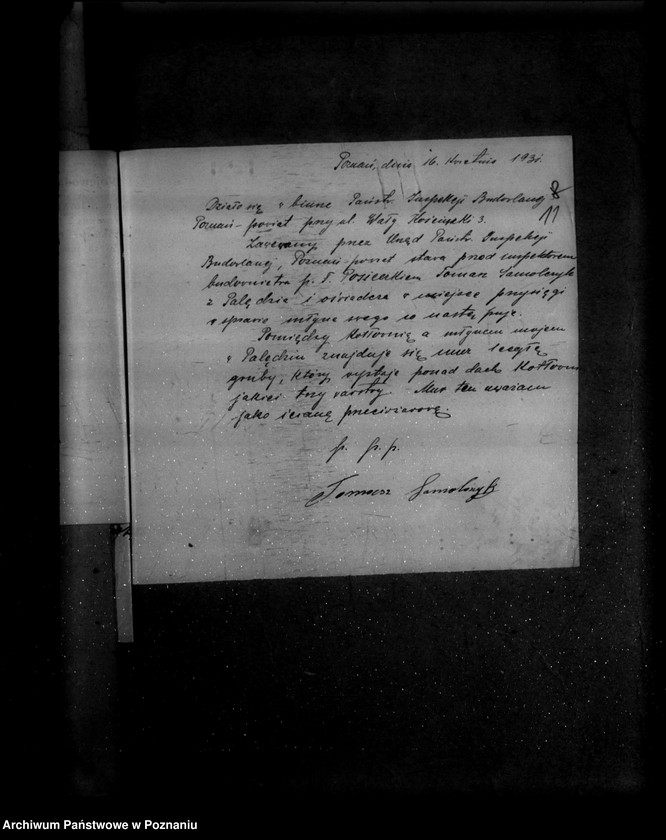 Poznań, dnia 16. kwietnia 1931.
8
11
Działo się w biurze Państw. Inspekcji Budowlanej
Poznań-powiat przy ul. Wały Kościuszki 3.
Zawezwany przez Urząd Państw. Inspekcji
Budowlanej, Poznań-powiat stawa przed inspektorem
budownictwa p. F. Tomasz Samolczyk
z Palędzia i oświadcza w miejsce przysięgi
w sprawie młyna swego co następuje.
Pomiędzy kotłownią a młynem mojem
w Palędziu znajduje się mur 1 cegłę
gruby, który wystaje ponad dach kotłowni
jakieś trzy warstwy. Mur ten uważam
jako ścianę przeciwżarową.
p. p. p.
Tomasz Samolczyk
Archiwum Państwowe w Poznaniu